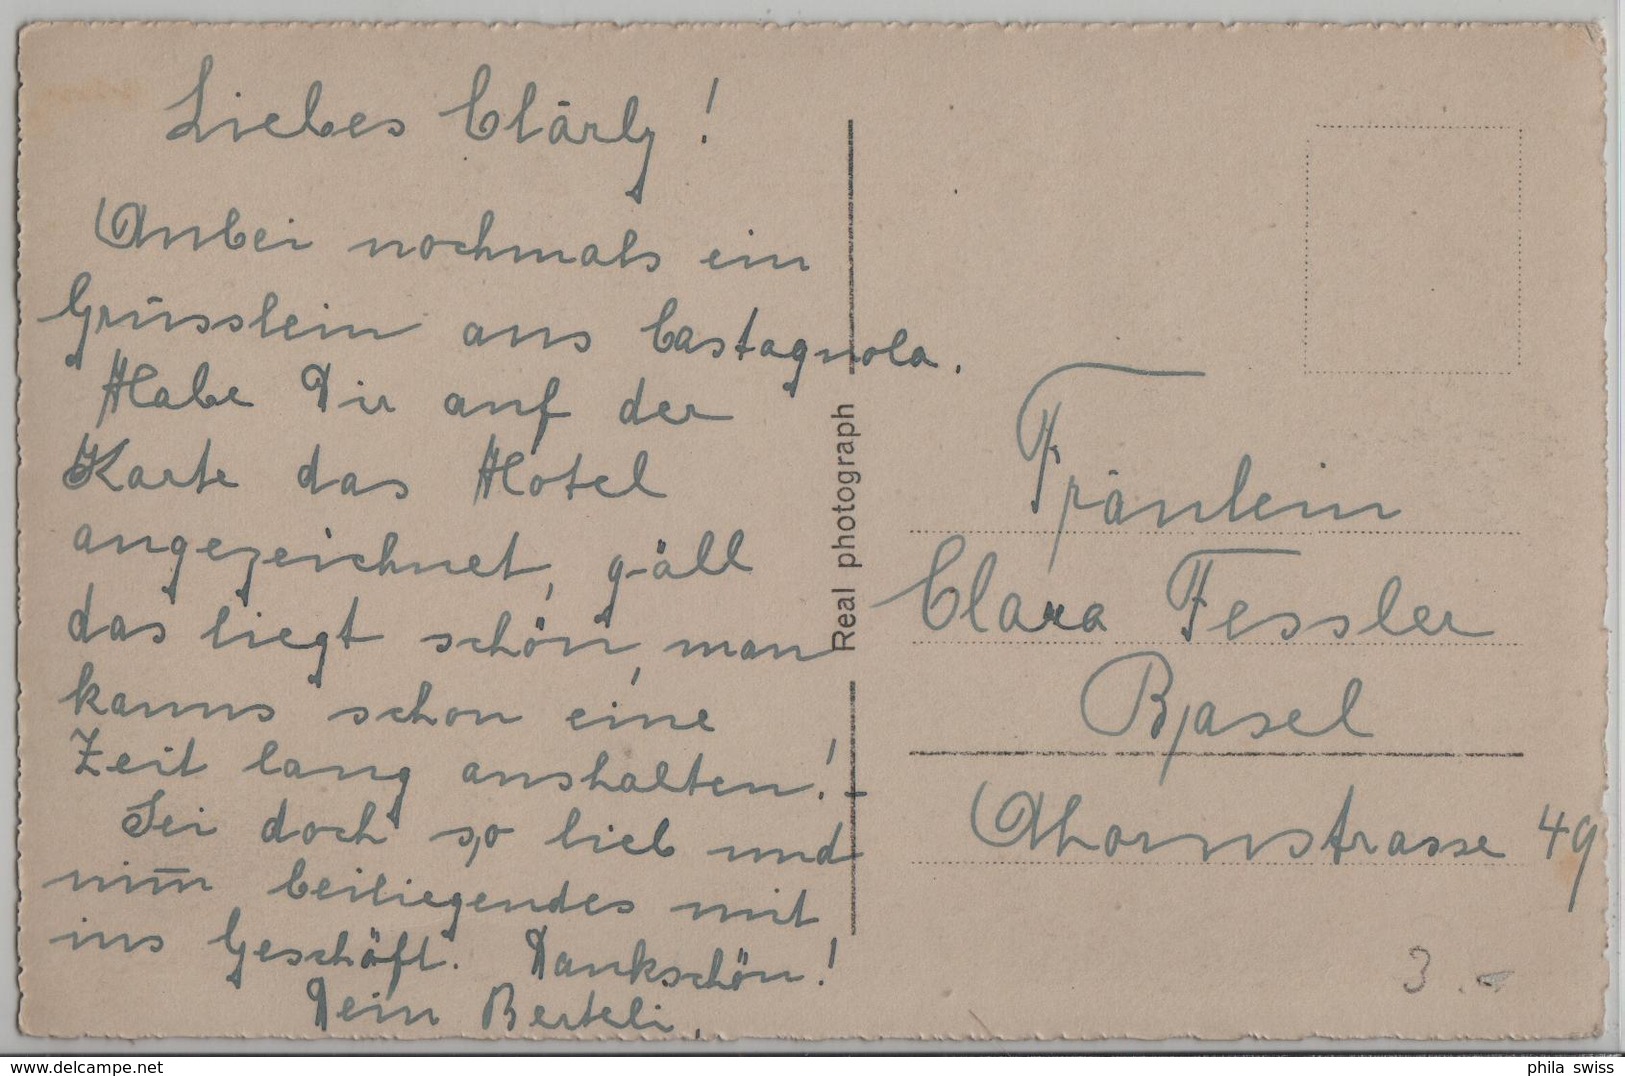 Liebes Clärly!
Anbei nochmals ein
Grüsslein aus Castagnola.
Habe Dir auf der
Karte das Hotel
angezeichnet, gäll
das liegt schön, man
kanns schon eine
Zeit lang aushalten! –
Sei doch so lieb und
nim̅ beiliegendes mit
ins Geschäft. Dankschön!
Dein Berteli.
Real photograph
Fräulein
Clara Fessler
Basel
Ahornstrasse 49
3.-
phila swiss